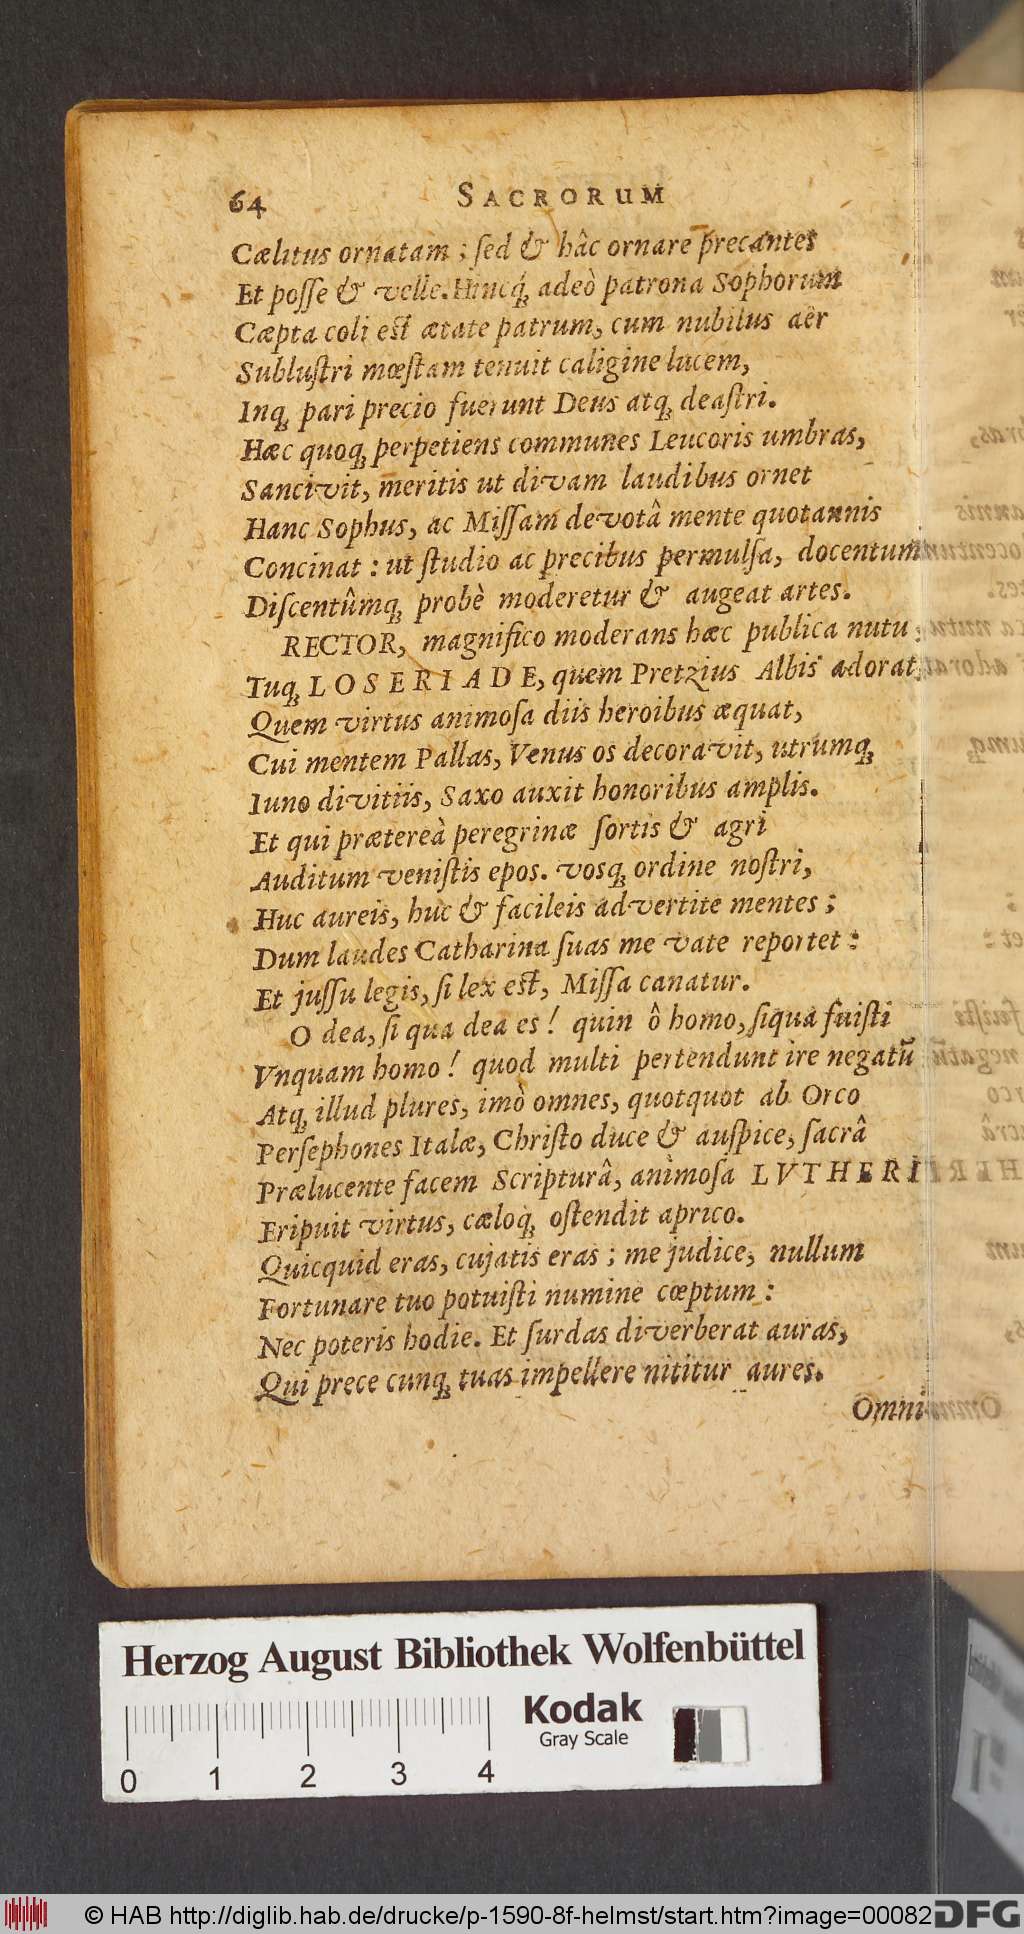 64 SACRORUM
Cælitus ornatam ; sed & hâc ornare precantes
Et posse & velle. Hincq́; adeò patrona Sophorum
Cæpta coli est ætate patrum, cum nubilus aër
Sublustri mœstam tenuit caligine lucem,
Inq; pari precio fuerunt Deus atq; deastri.
Hæc quoq; perpetiens communes Leucoris umbras,
Sancivit, meritis ut divam laudibus ornet
Hanc Sophus, ac Missam devotâ mente quotannis
Concinat : ut studio ac precibus permulsa, docentum
Discentûmq; probè moderetur & augeat artes.
RECTOR, magnifico moderans hæc publica nutu ;
Tuq; LOSERIADE, quem Pretzius Albis adorat,
Quem virtus animosa diis heroibus æquat,
Cui mentem Pallas, Venus os decoravit, utrumq;
Iuno divitiis, Saxo auxit honoribus amplis.
Et qui prætereà peregrinæ sortis & agri
Auditum venistis epos. vosq; ordine nostri,
Huc aureis, huc & facileis advertite mentes ;
Dum laudes Catharina suas me vate reportet :
Et jussu legis, si lex est, Missa canatur.
O dea, si qua dea es ! quin ô homo, siqua fuisti
Vnquam homo ! quod multi pertendunt ire negatū
Atq; illud plures, imò omnes, quotquot ab Orco
Persephones Italæ, Christo duce & auspice, sacrâ
Prælucente facem Scripturâ, animosa LVTHERI
Eripuit virtus, cæloq; ostendit aprico.
Quicquid eras, cujatis eras ; me judice, nullum
Fortunare tuo potuisti numine cœptum :
Nec poteris hodie. Et surdas diverberat auras,
Qui prece cunq; tuas impellere nititur aures.
Omni-
Herzog August Bibliothek Wolfenbüttel
Kodak
Gray Scale
0 1 2 3 4
© HAB http://diglib.hab.de/drucke/p-1590-8f-helmst/start.htm?image=00082
DFG